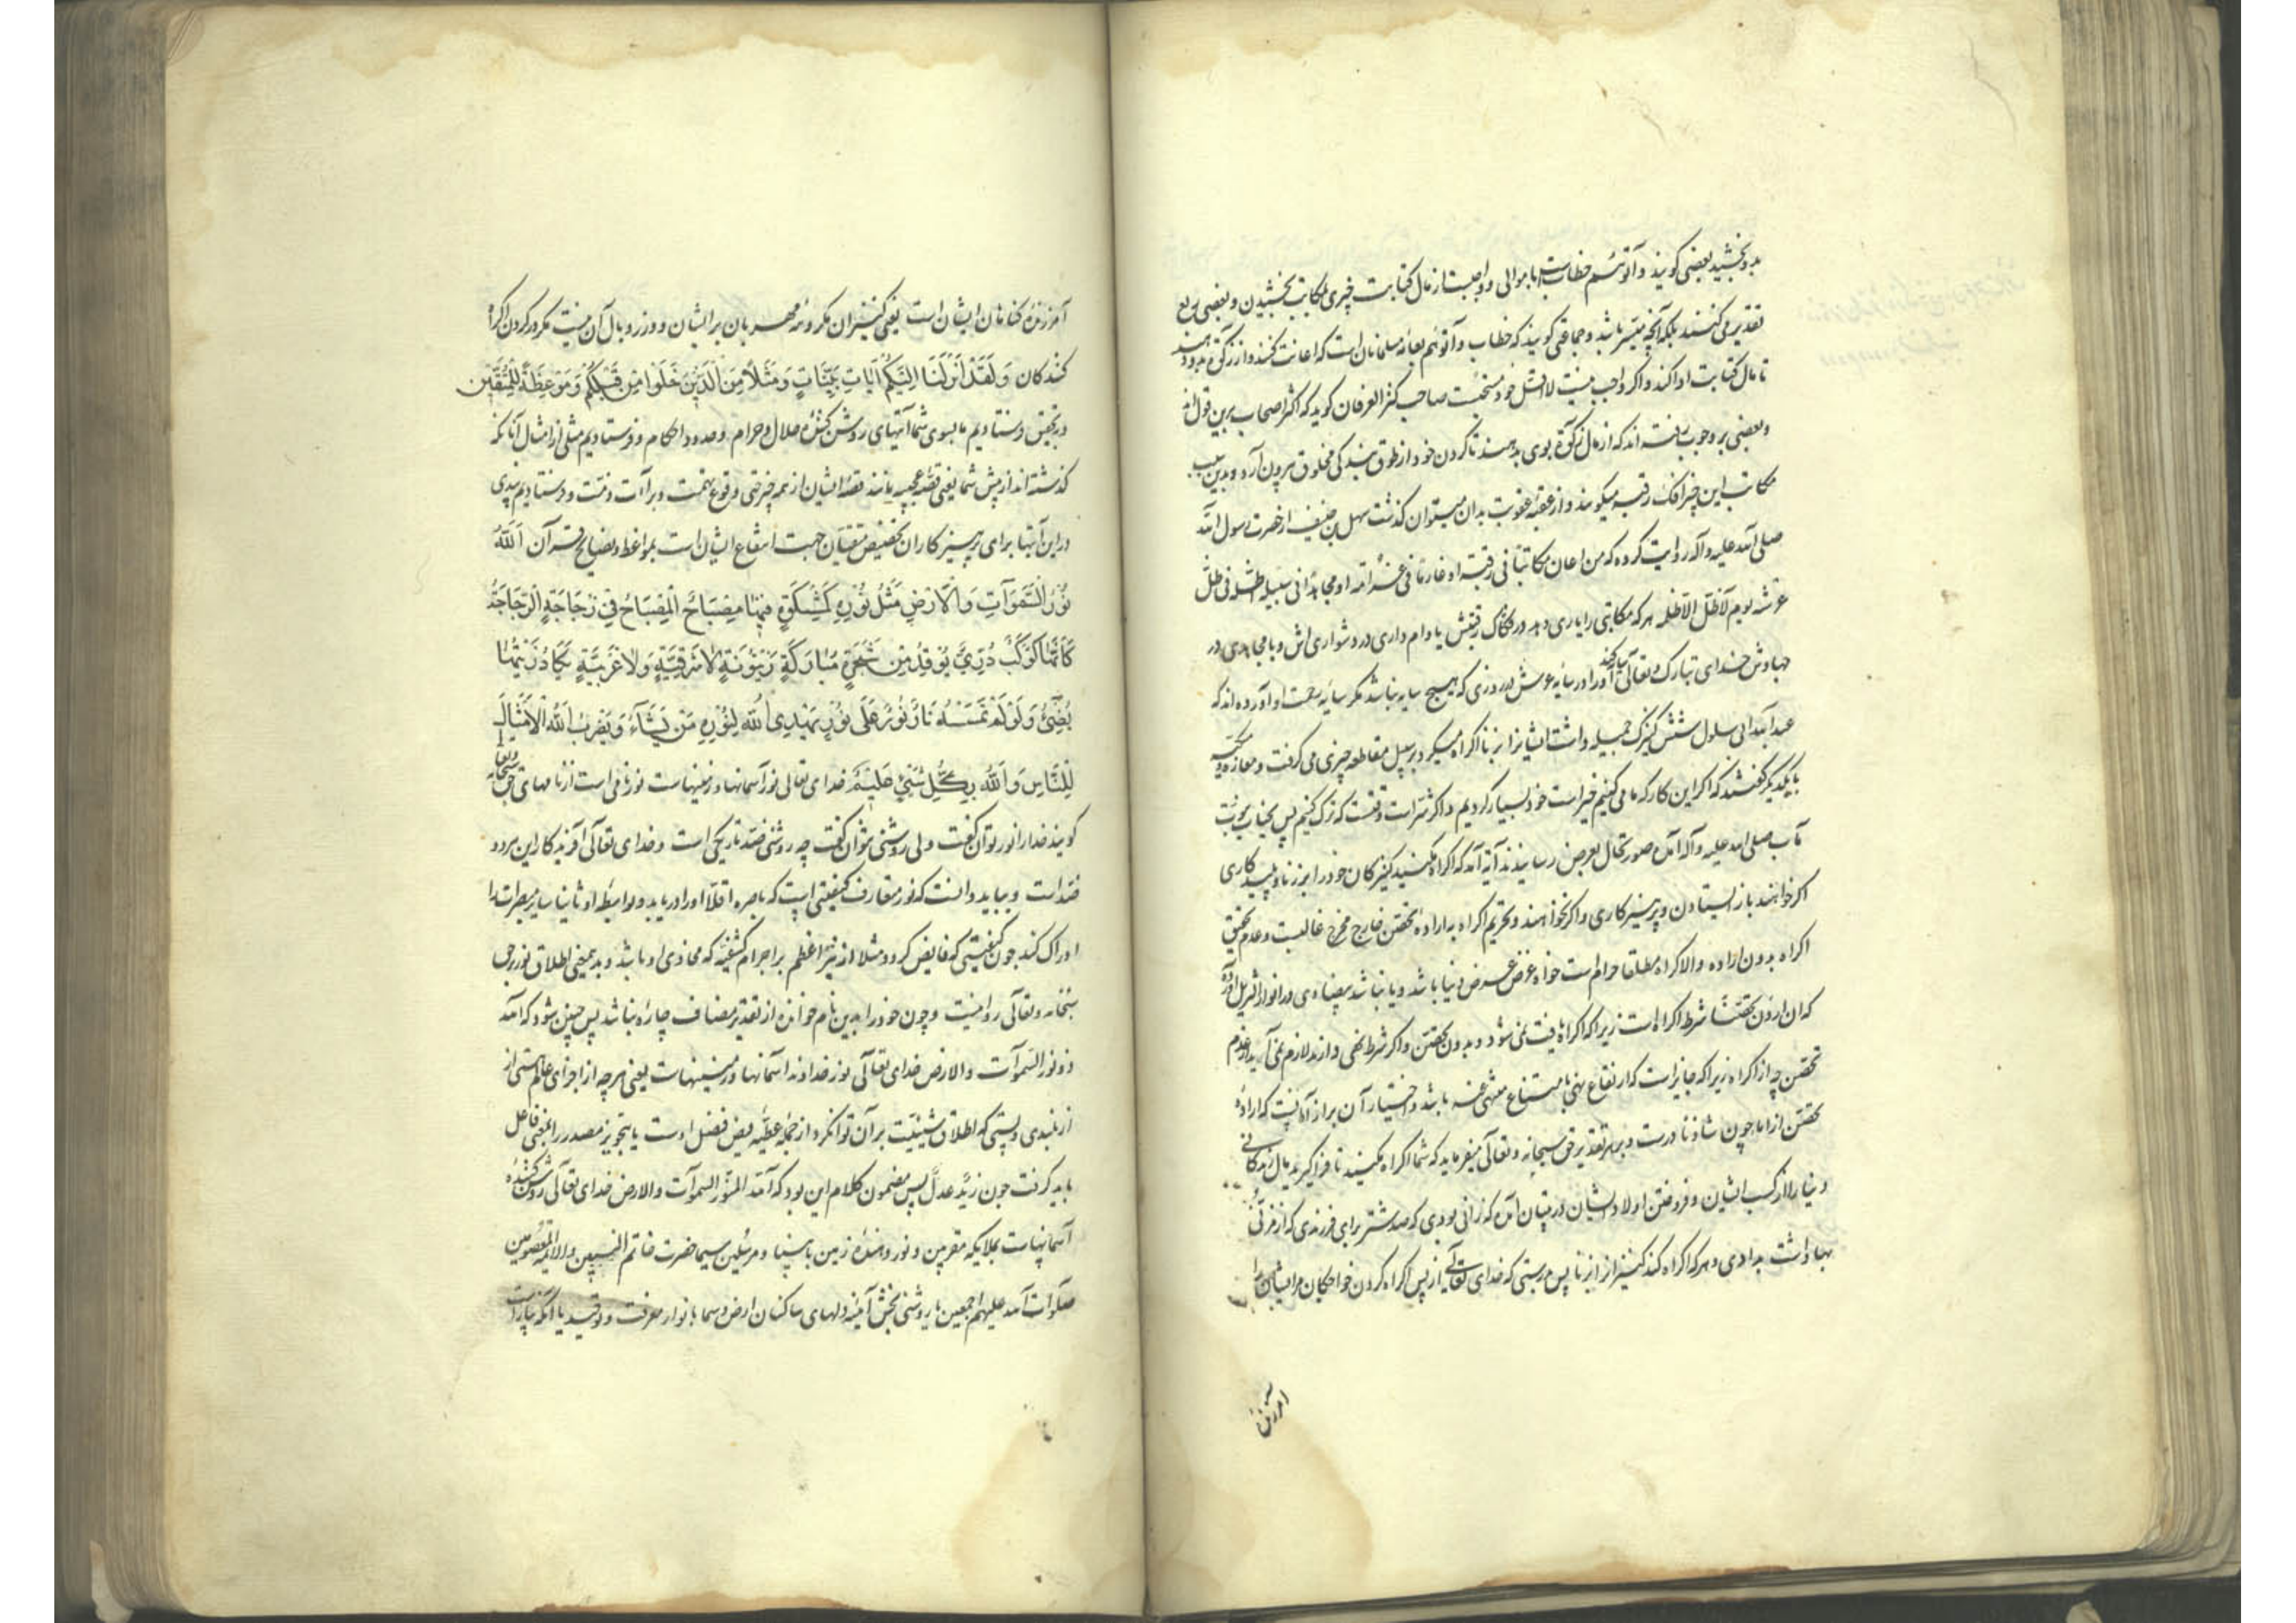 بدو بخشید بعضی گویند وآتوهم خطابست با موالی و واجبست از مال کتابت چیزی بمکاتب بخشیدن و بعضی ربع
تقدیر می کنند بلکه آنچه میسر باشد و جماعتی گویند که خطاب وآتوهم بعامه مسلمانان است که اعانت کنند و از زکوة بدو دهند
تا مال کتابت ادا کند و اگر واجب نیست لااقل خود مستحبست صاحب کنز العرفان گوید که اکثر اصحاب برین قول اند
وبعضی بر وجوب رفته اند که از مال زکوة بوی بدهند تا گردن خود از طوق بندگی مخلوق بیرون آرد و بدین سبب
مکاتب این چیز را فک رقبه میگویند و از عقبه عقوبت بدان میتوان گذشت سهل بن حنیف از حضرت رسول الله
صلی الله علیه وآله روایت کرده که من اعان مکاتبا فی رقبته او غارما فی عسرته او مجاهدا فی سبیله اظله الله فی ظل
عرشه یوم لا ظل الا ظله هر که مکاتبی را یاری دهد در فکاک رقبتش یا وام داری در دشواری اش و یا مجاهدی در
جهادش خدای تبارک وتعالی او را در سایه عرش در روزی که هیچ سایه نباشد مگر سایه رحمت او آورده اند که
عبد الله ابی سلول شش کنیزک جمیله داشت ایشانرا بزنا اکراه میکرد و بر سبیل مقاطعه چیزی می گرفت و معاذه و مسیکه
با یکدیگر گفتند که اگر این کار که ما می کنیم خیر است خود بسیار کردیم و اگر شر است وقتست که ترک کنیم پس بجناب نبوت
مآب صلی الله علیه وآله آمده صورتحال بعرض رسانیدند آیه آمد که اکراه مکنید کنیزکان خود را بر زنا و پلید کاری
اگر خواهند باز ایستادن و پرهیزکاری و اگر نخواهند و تحریم اکراه به اراده تحصن خارج مخرج غالبست و عدم تحقق
اکراه بدون اراده والا اکراه مطلقا حرام است خواه غرض عرض دنیا باشد و یا نباشد بیضاوی در انوار التنزیل آورده
که ان اردن تحصنا شرط اکراه است زیرا که اکراه یافت نمی شود بدون تحصن و اگر شرط نهی دارند لازم نمی آید از عدم
تحصن جواز اکراه زیرا که جایز است که ارتفاع نهی بامتناع منهی عنه باشد و اختیار ان بر اذا آنست که اراده
تحصن از اما چون شاذ نادرست و بهر تقدیر حق سبحانه وتعالی میفرماید که شما اکراه مکنید تا فرا گیرید مال زندگانی
دنیا را از کسب ایشان و فروختن اولاد ایشان در تبیان آمده که زانی بودی که صد شتر برای فرزندی که از مزنیه
بها داشت بدادی و هر که اکراه کند کنیز را بر زنا پس بدرستی که خدای تعالی از پس اکراه کردن خواجگان مر ایشان را
آمرزنده
آمرزنده گناهان ایشان است یعنی کنیزان مکروهه مهربان بر ایشان و وزر و بال آن نیست مگر در گردن اکراه
کنندگان وَلَقَدْ أَنْزَلْنَا إِلَيْكُمْ آيَاتٍ بَيِّنَاتٍ وَمَثَلًا مِنَ الَّذِينَ خَلَوْا مِنْ قَبْلِكُمْ وَمَوْعِظَةً لِلْمُتَّقِينَ
وبتحقیق فرستادیم ما بسوی شما آیتهای روشن کننده حلال و حرام و حدود احکام و فرستادیم مثلی از امثال آنانکه
گذشته اند از پیش شما یعنی قصه عجیبه مانند قصه ایشان از همه چیز حتی وقوع تهمت و برآات ذمت و فرستادیم پندی
در این آیتها برای پرهیزکاران تخصیص متقیان جهت انتفاع ایشان است بمواعظ ونصایح قرآن اَللَّهُ
نُورُ السَّمَوَاتِ وَالْأَرْضِ مَثَلُ نُورِهِ كَمِشْكَوةٍ فِيهَا مِصْبَاحٌ الْمِصْبَاحُ فِي زُجَاجَةٍ الزُّجَاجَةُ
كَأَنَّهَا كَوْكَبٌ دُرِّيٌّ يُوقَدُ مِنْ شَجَرَةٍ مُبَارَكَةٍ زَيْتُونَةٍ لَا شَرْقِيَّةٍ وَلَا غَرْبِيَّةٍ يَكَادُ زَيْتُهَا
يُضِيءُ وَلَوْ لَمْ تَمْسَسْهُ نَارٌ نُورٌ عَلَى نُورٍ يَهْدِي اللَّهُ لِنُورِهِ مَنْ يَشَاءُ وَيَضْرِبُ اللَّهُ الْأَمْثَالَ
لِلنَّاسِ وَاللَّهُ بِكُلِّ شَيْءٍ عَلِيمٌ خدای تعالی نور آسمانها و زمینهاست نور نامی است از نامهای حق سبحانه وتعالی
گویند خدا را نور توان گفت ولی روشنی نتوان گفت چه روشنی ضد تاریکی است و خدای تعالی آفریدکار این هر دو
ضد است و بباید دانست که نور متعارف کیفیتی است که باصره اولا او را دریابد و بواسطه او ثانیا سایر مبصرات را
ادراک کند چون کیفیتی که فایض گردد مثلا از نیر اعظم بر اجرام کثیفه که محاذی او باشد و بدین معنی اطلاق نور بر حق
سبحانه وتعالی روا نیست و چون خود را بدین نام خوانده از تقدیر مضاف چاره نباشد پس چنین شود که الله
ذو نور السموآت والارض خدای تعالی نور خداوند آسمانها و زمینهاست یعنی هر چه از اجزای عالم هستی از
از بلندی و پستی که اطلاق شیئیت بر آن توان کرد از جمله عطیه فیض فضل اوست یا بتجویز مصدر را بمعنی فاعل
باید گرفت چون زید عدل پس مضمون کلام این بود که الله المنور السموآت والارض خدای تعالی روشن کننده
آسمانهاست بملایکه مقربین و نور دهنده زمین بانبیا و مرسلین سیما حضرت خاتم النبیین و الائمة المعصومین
صلوات الله علیهم اجمعین یا روشنی بخش آیینه دلهای ساکنان ارض و سما بانوار معرفت و توحید یا آنکه بیاراست